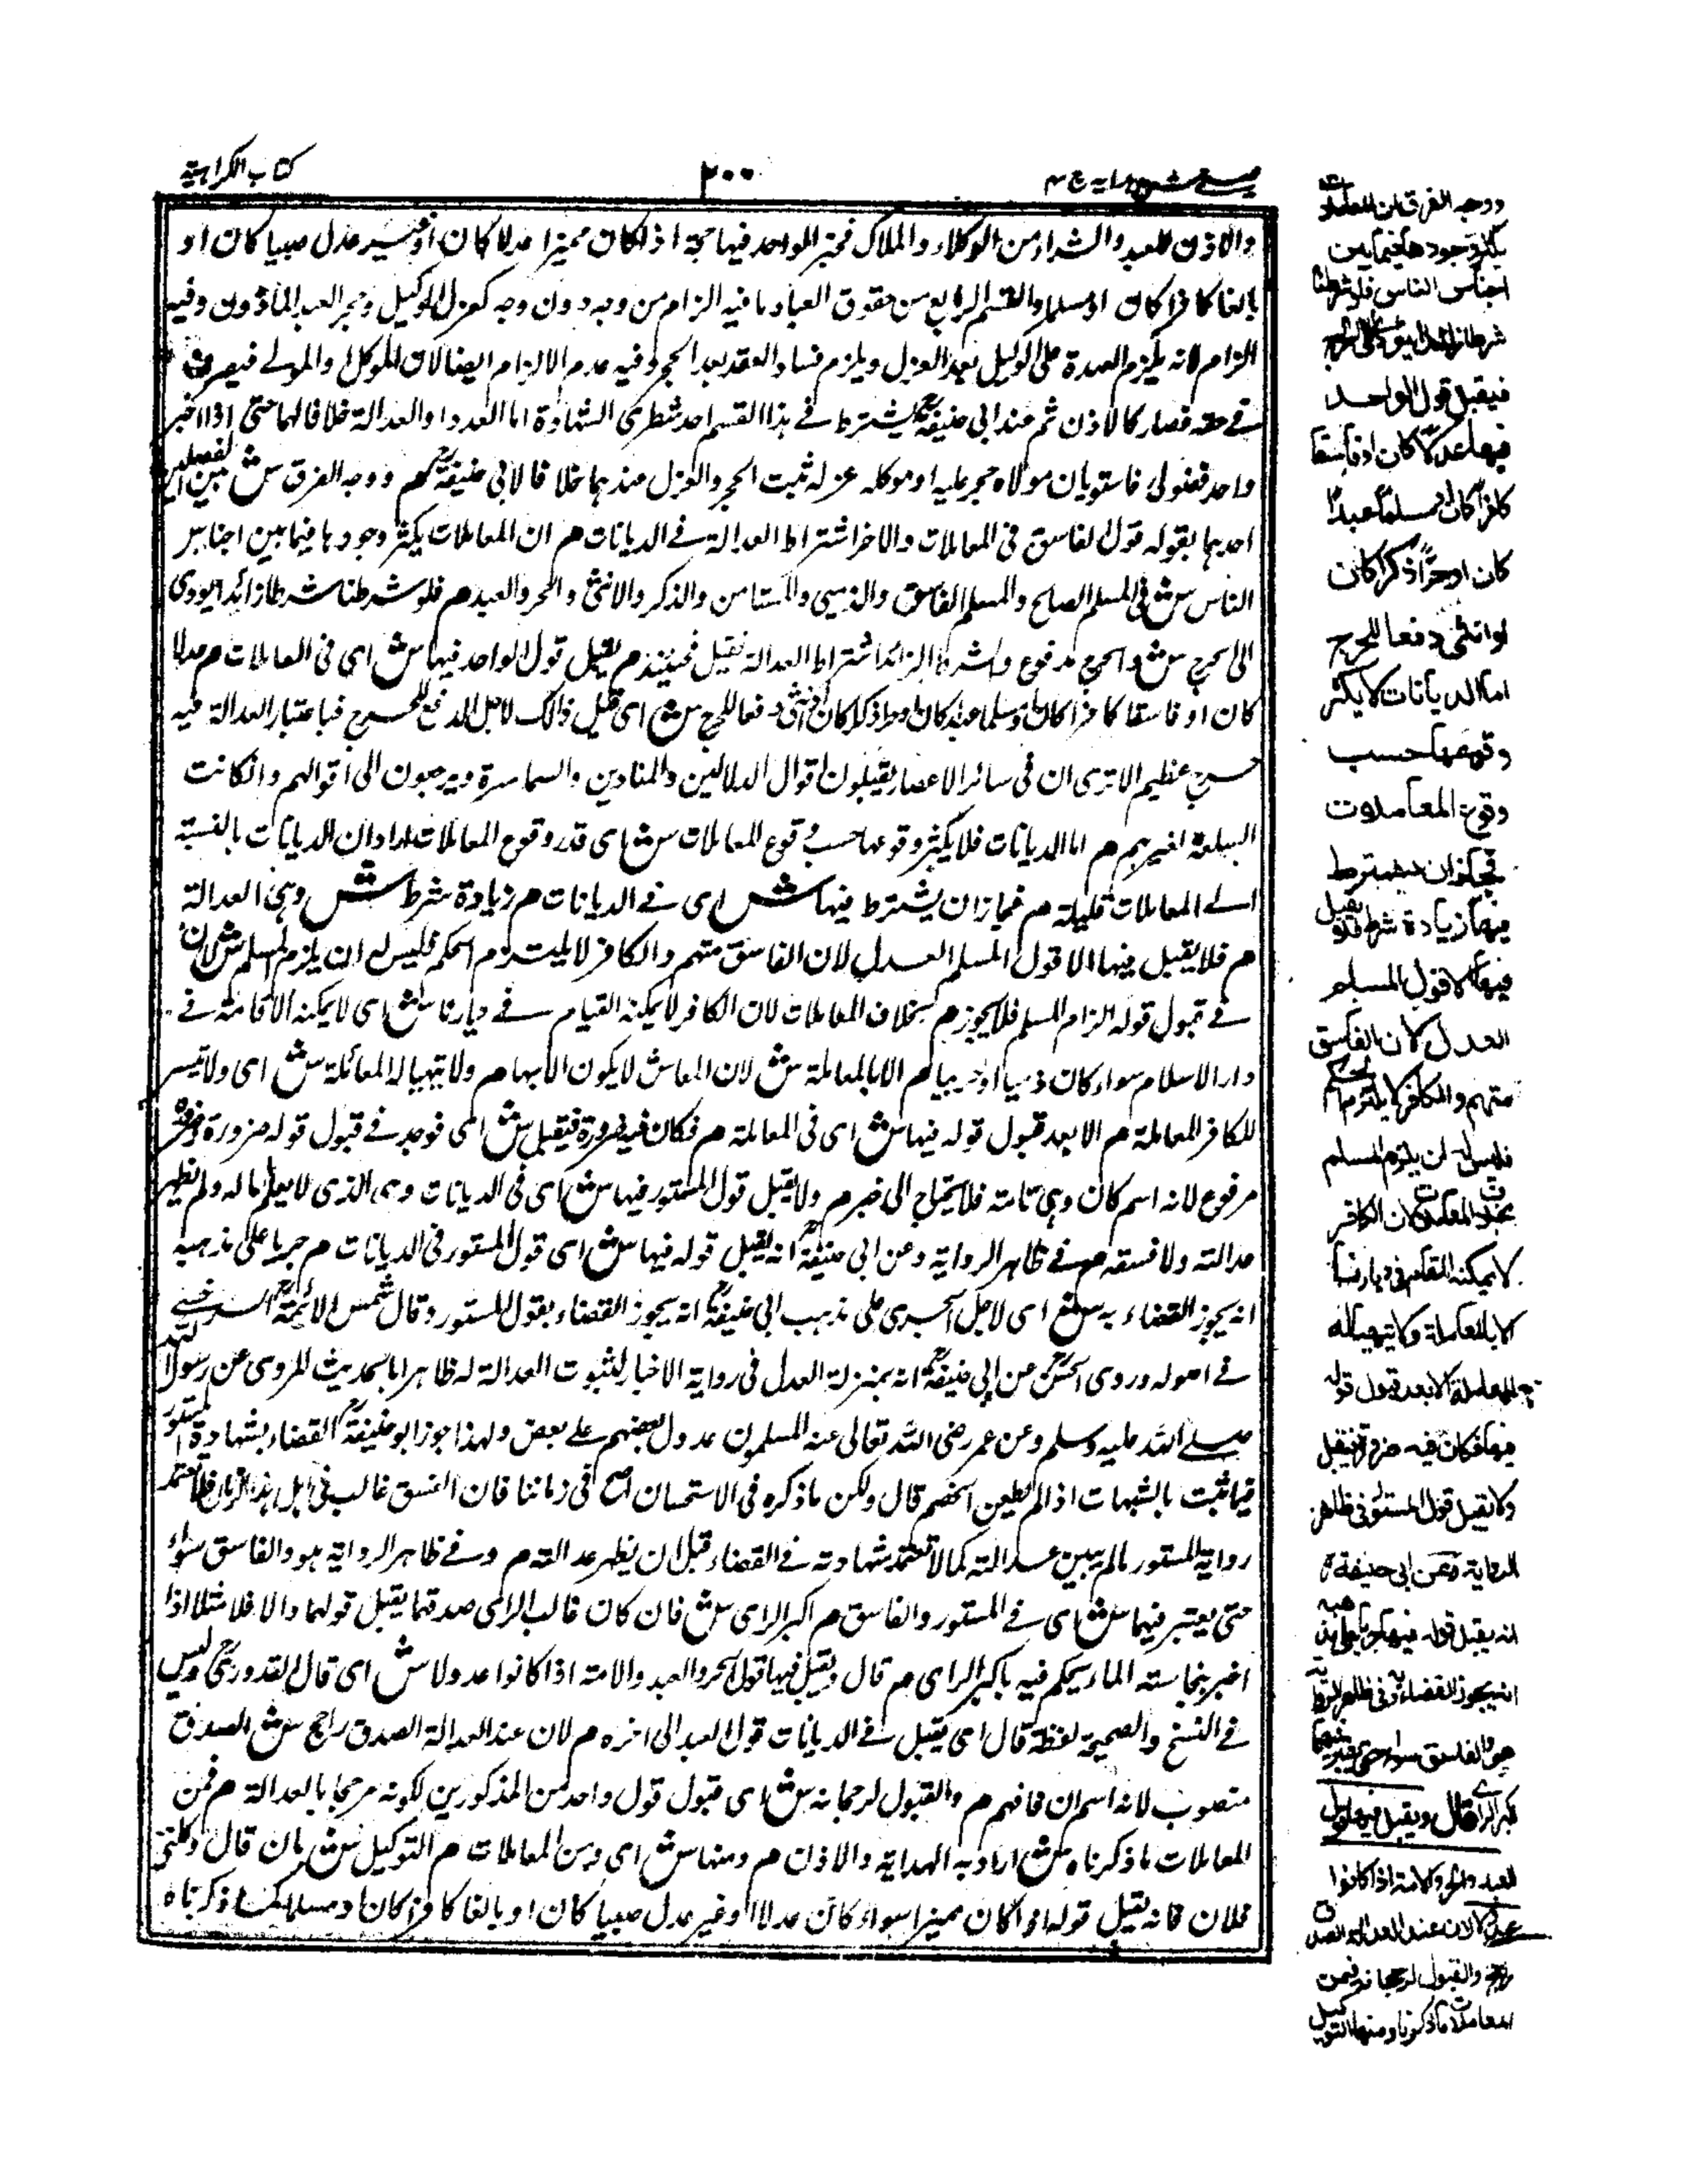 كتاب الكراهية
٢٠٠
عينى شرح هدايه ج ٤
والاذن للعبد والشراء من الوكلاء والملاك فخبر الواحد فيها حجة اذا كان مميزا عدلا كان او غير عدل صبيا كان او
بالغا كافرا كان او مسلما والقسم الرابع من حقوق العباد ما فيه الزام من وجه دون وجه كعزل الوكيل وحجر العبد الماذون وفيه
الزام لانه يلزم العهدة على الوكيل بعد العزل ويلزم فساد العقد بعد الحجر وفيه عدم الالزام ايضا لان الموكل والمولى فيصرف
فى حقه فصار كالاذن ثم عند ابى حنيفة يشترط فى هذا القسم احد شطرى الشهادة اما العدد او العدالة خلافا لهما حتى اذا اخبر
واحد فضولى فاسق بان مولاه حجر عليه او موكله عزله ثبت الحجر والعزل عندهما خلافا لابى حنيفة م ووجه الفرق ش بين الفصلين
احدهما بقوله قول الفاسق فى المعاملات والاخر اشتراط العدالة فى الديانات م ان المعاملات يكثر وجودها فيما بين اجناس
الناس ش فى المسلم الصالح والمسلم الفاسق والذمى والمستامن والذكر والانثى والحر والعبد م فلو شرطنا شرطا زائدا يودى
الى الحرج ش والحرج مدفوع واشتراط الزائد اشتراط العدالة فحينئذ م يقبل قول الواحد فيها ش اى فى المعاملات م عدلا
كان او فاسقا كافرا كان او مسلما عبدا كان او حرا ذكرا كان او انثى دفعا للحرج ش اى قبل ذالك لاجل الدفع للحرج فباعتبار العدالة فيه
حرج عظيم الا ترى ان فى سائر الاعصار يقبلون اقوال الدلالين والمنادين والسماسرة ويرجعون الى اقوالهم وان كانت
السلعة لغيرهم م اما الديانات فلا يكثر وقوعها حسب وقوع المعاملات ش اى قدر وقوع المعاملات اراد ان الديانات بالنسبة
الى المعاملات قليلة م فجاز ان يشترط فيها ش اى فى الديانات م زيادة شرط ش وهى العدالة
م فلا يقبل فيها الا قول المسلم العدل لان الفاسق متهم والكافر لا يلتزم الحكم فليس له ان يلزم المسلم ش لان
فى قبول قوله الزام المسلم فلا يجوز م بخلاف المعاملات لان الكافر لا يمكنه القيام فى ديارنا ش اى لا يمكنه الاقامة فى
دار الاسلام سواء كان ذميا او حربيا م الا بالمعاملة ش لان المعاش لا يكون الا بها م ولا يتهيا له المعاملة ش اى ولا تيسر
للكافر المعاملة م الا بعد قبول قوله فيها ش اى فى المعاملة م فكان فيه ضرورة فيقبل ش اى فوجد فى قبول قوله ضرورة
مرفوع لانه اسم كان وهى تامة فلا يحتاج الى خبر م ولا يقبل قول المستور فيها ش اى فى الديانات وهى الذى لا يعلم حاله ولم تظهر
عدالته ولا فسقه م فى ظاهر الرواية وعن ابى حنيفة انه يقبل قوله فيها ش اى قول المستور فى الديانات م جريا على مذهبه
انه يجوز القضاء به ش اى لاجل الجرى على مذهب ابى حنيفة انه يجوز القضاء بقول المستور وقال شمس الائمة السرخسى
فى اصوله وروى الحسن عن ابى حنيفة انه بمنزلة العدل فى رواية الاخبار لثبوت العدالة له ظاهرا بالحديث المروى عن رسول الله
صلى الله عليه وسلم وعن عمر رضى الله تعالى عنه المسلمون عدول بعضهم على بعض ولهذا جوز ابو حنيفة القضاء بشهادة المستور
فيما ثبت بالشبهات اذا لم يطعن الخصم قال ولكن ما ذكره فى الاستحسان اصح فى زماننا فان الفسق غالب فى اهل هذا الزمان فلا تعتمد
رواية المستور ما لم يتبين عدالته كما لا تعتمد شهادته فى القضاء قبل ان يظهر عدالته م وفى ظاهر الرواية هو والفاسق سواء
حتى يعتبر فيهما ش اى فى المستور والفاسق م اكبر الراى ش فان كان غالب الراى صدقهما يقبل قولهما والا فلا مثلا اذا
اخبر بنجاسة الماء يحكم فيه باكبر الراى م قال ويقبل فيها قول الحر والعبد والامة اذا كانوا عدولا ش اى قال القدورى وليس
فى النسخ والصحيحة لفظة قال اى يقبل فى الديانات قول العبد الى اخره م لان عند العدالة الصدق راجح ش الصدق
منصوب لانه اسم ان فافهم م والقبول لرجحانه ش اى قبول قول واحد من المذكورين لكونه مرجحا بالعدالة م فمن
المعاملات ما ذكرناه ش اراد به الهداية والاذن م ومنها ش اى ومن المعاملات م التوكيل ش بان قال وكلنى
فلان فانه يقبل قوله اذا كان مميزا سواء كان عدلا او غير عدل صبيا كان او بالغا كافرا كان او مسلما كما ذكرناه
ووجه الفرق ان المعاملات
يكثر وجودها فيما بين
اجناس الناس فلو شرطنا
شرطا زائدا يؤدى الى الحرج
فيقبل قول الواحد
فيها عدلا كان او فاسقا
كافرا كان او مسلما عبدا
كان او حرا ذكرا كان
او انثى دفعا للحرج
اما الديانات لا يكثر
وقوعها حسب
وقوع المعاملات
فجاز ان يشترط
فيها زيادة شرط فلا يقبل
فيها الا قول المسلم
العدل لان الفاسق
متهم والكافر لا يلتزم الحكم
فليس له ان يلزم المسلم
بخلاف المعاملات لان الكافر
لا يمكنه المقام فى ديارنا
الا بالمعاملة ولا يتهيأ له
المعاملة الا بعد قبول قوله
فيها فكان فيه ضرورة فيقبل
ولا يقبل قول المستور فى ظاهر
الرواية وعن ابى حنيفة
انه يقبل قوله فيها جريا على مذهبه
انه يجوز القضاء به وفى ظاهر الرواية
هو والفاسق سواء حتى يعتبر فيهما
اكبر الراى قال ويقبل فيها قول
العبد والحر والامة اذا كانوا
عدولا لان عند العدالة الصدق
راجح والقبول لرجحانه فمن
المعاملات ما ذكرنا ومنها التوكيل